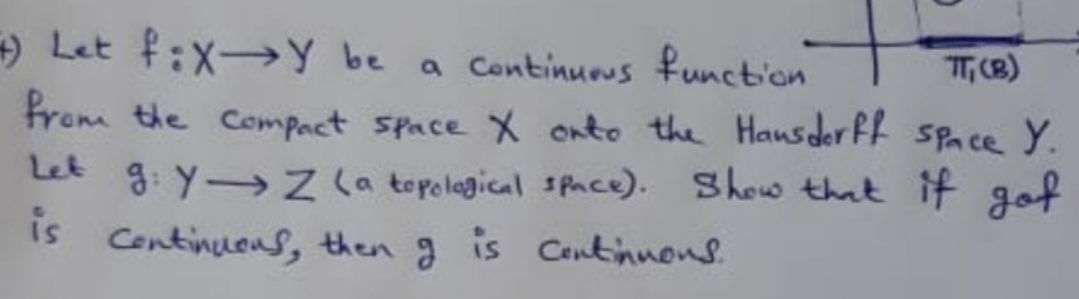 t) Let f: X → Y be a continuous function
π₁(B)
from the compact space X onto the Hausdorff space Y.
Let g: Y → Z (a topological space). Show that if gof
is continuous, then g is continuous.